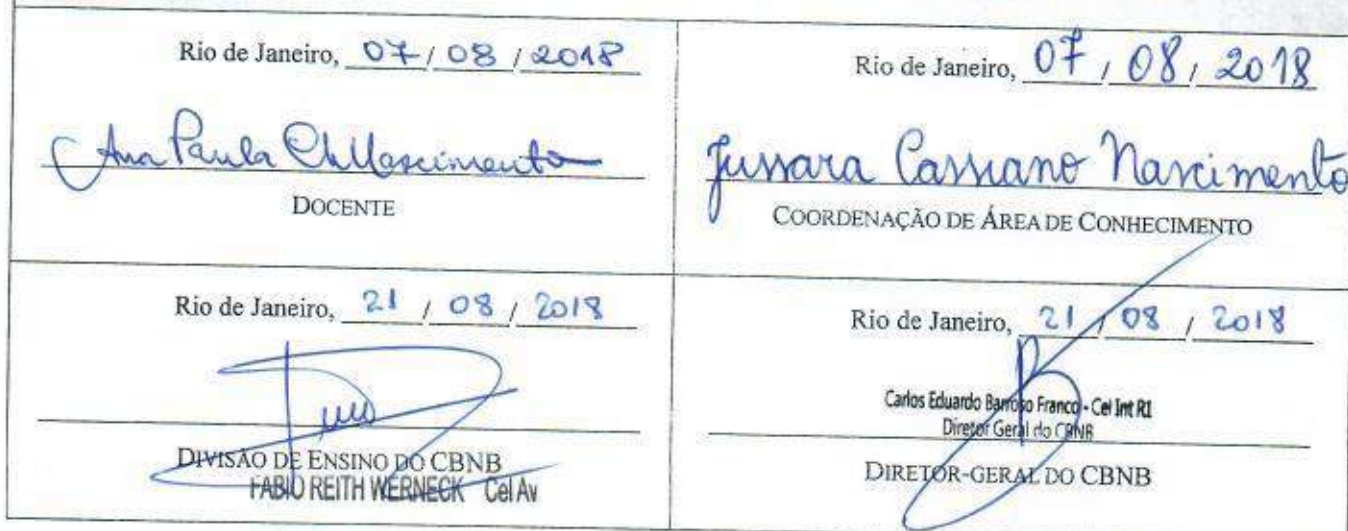 Rio de Janeiro, 07 / 08 / 2018
Ana Paula
DOCENTE
Rio de Janeiro, 07 / 08 / 2018
Jussara Cassiano Nascimento
COORDENAÇÃO DE ÁREA DE CONHECIMENTO
Rio de Janeiro, 21 / 08 / 2018
DIVISÃO DE ENSINO DO CBNB
FABIO REITH WERNECK Cel Av
Rio de Janeiro, 21 / 08 / 2018
Carlos Eduardo Barroso Franco - Cel Int R1
Diretor Geral do CBNB
DIRETOR-GERAL DO CBNB